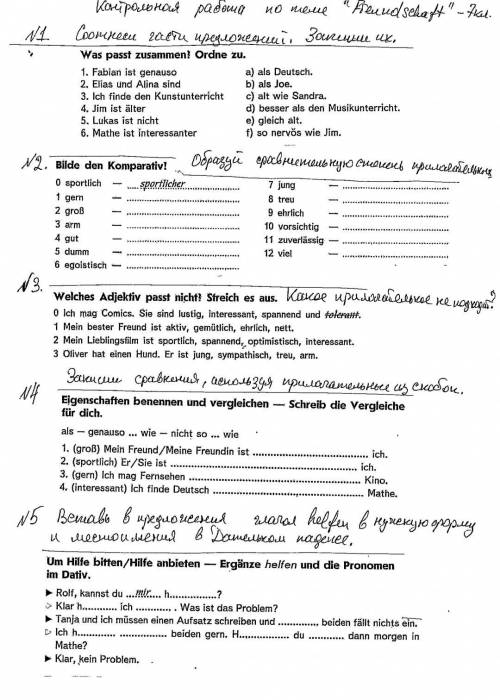 Контрольная работа по теме "Freundschaft" - 7кл.
N1. Соотнеси части предложений. Запиши их.
Was passt zusammen? Ordne zu.
1. Fabian ist genauso a) als Deutsch.
2. Elias und Alina sind b) als Joe.
3. Ich finde den Kunstunterricht c) alt wie Sandra.
4. Jim ist älter d) besser als den Musikunterricht.
5. Lukas ist nicht e) gleich alt.
6. Mathe ist interessanter f) so nervös wie Jim.
N2. Bilde den Komparativ! Образуй сравнительную степень прилагательных
0 sportlich — sportlicher 7 jung —
1 gern — 8 treu —
2 groß — 9 ehrlich —
3 arm — 10 vorsichtig —
4 gut — 11 zuverlässig —
5 dumm — 12 viel —
6 egoistisch —
N3.
Welches Adjektiv passt nicht? Streich es aus. Какое прилагательное не подходит?
0 Ich mag Comics. Sie sind lustig, interessant, spannend und tolerant.
1 Mein bester Freund ist aktiv, gemütlich, ehrlich, nett.
2 Mein Lieblingsfilm ist sportlich, spannend, optimistisch, interessant.
3 Oliver hat einen Hund. Er ist jung, sympathisch, treu, arm.
N4 Запиши сравнения, используя прилагательные из скобок.
Eigenschaften benennen und vergleichen — Schreib die Vergleiche
für dich.
als — genauso ... wie — nicht so ... wie
1. (groß) Mein Freund/Meine Freundin ist ........ ich.
2. (sportlich) Er/Sie ist ........ ich.
3. (gern) Ich mag Fernsehen ........ Kino.
4. (interessant) Ich finde Deutsch ........ Mathe.
N5 Вставь в предложения глагол helfen в нужную форму
и местоимения в Дательном падеже.
Um Hilfe bitten/Hilfe anbieten — Ergänze helfen und die Pronomen
im Dativ.
► Rolf, kannst du ...mir... h...............?
▷ Klar h........... ich ............ . Was ist das Problem?
► Tanja und ich müssen einen Aufsatz schreiben und ............, beiden fällt nichts ein.
▷ Ich h............ ................... beiden gern. H................ du ............ dann morgen in
Mathe?
► Klar, kein Problem.